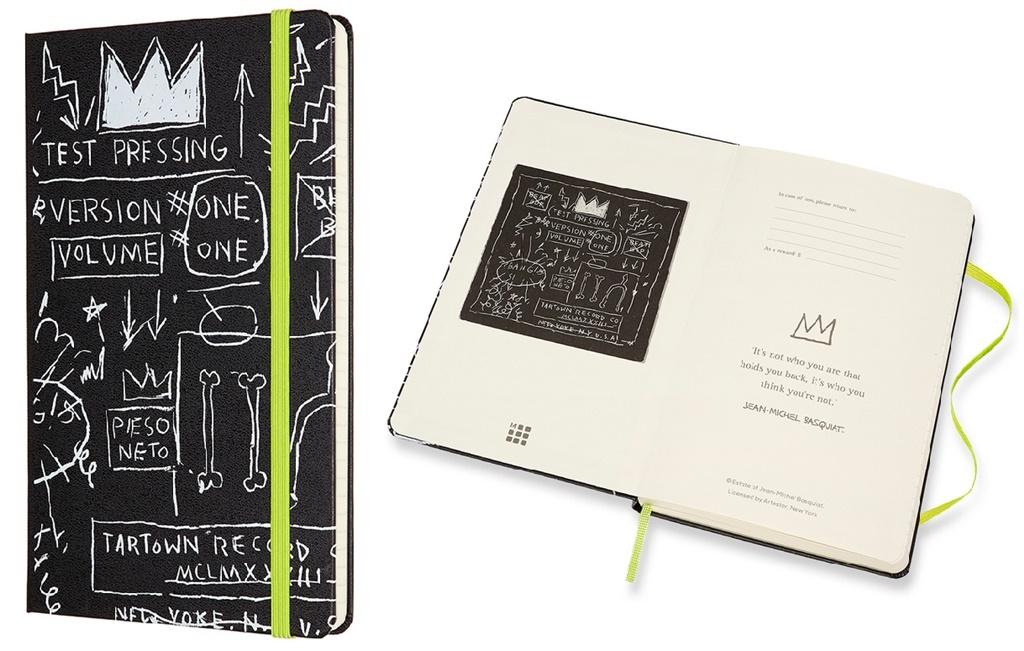 TEST PRESSING
VERSION #ONE.
VOLUME #ONE
PIESO
NETO
TARTOWN RECORD CO
MCLMXXXIII
NEW YOKE. N. V.
BEAT
BOP
TEST PRESSING
VERSION #ONE
VOLUME #ONE
BEAT
BOP
BANG!!
PIESO
NETO
TARTOWN RECORD CO
MCLMXXXIII
NEW YOKE. N.Y U.S.A!
M
In case of loss, please return to:
As a reward: $
'It's not who you are that
holds you back, it's who you
think you're not.'
JEAN-MICHEL BASQUIAT.
©Estate of Jean-Michel Basquiat.
Licensed by Artestar, New York